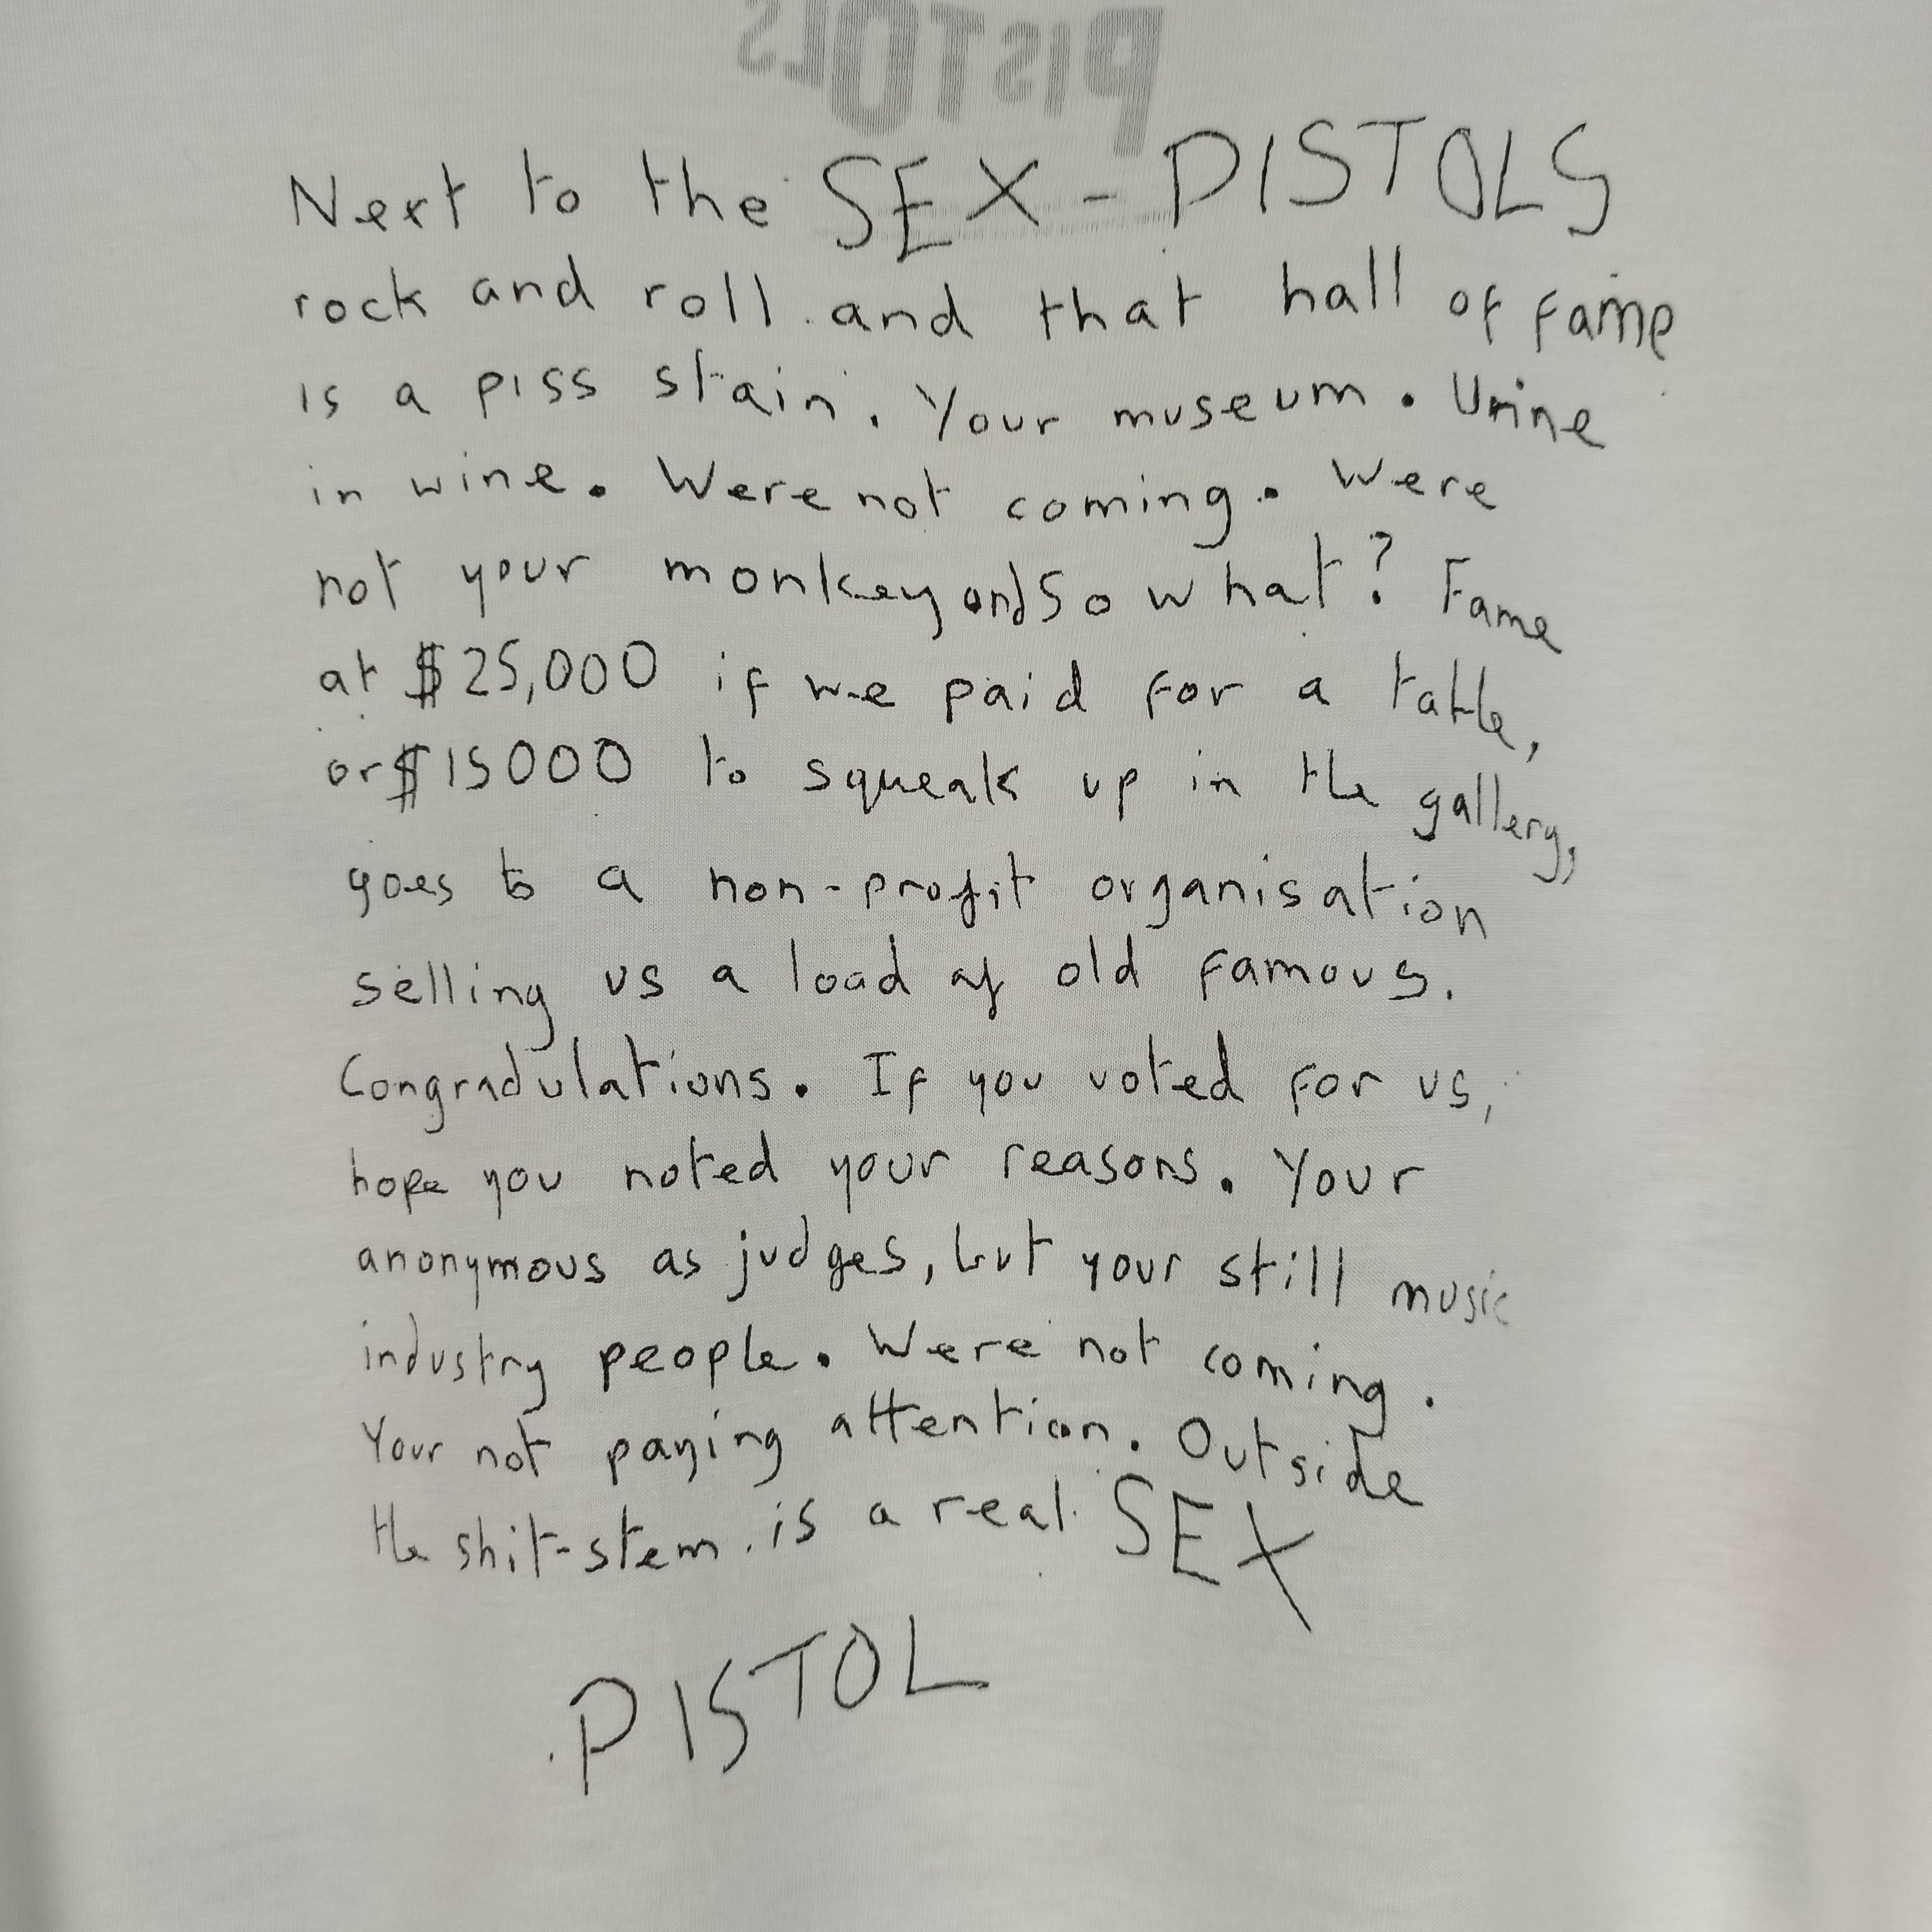 PISTOLS
Next to the SEX-PISTOLS
rock and roll and that hall of fame
is a piss stain. Your museum. Urine
in wine. Were not coming. Were
not your monkey and so what? Fame
at $25,000 if we paid for a table,
or $15000 to squeak up in the gallery,
goes to a non-profit organisation
selling us a load of old famous.
Congradulations. If you voted for us,
hope you noted your reasons. Your
anonymous as judges, but your still music
industry people. Were not coming.
Your not paying attention. Outside
the shit-stem is a real SEX
PISTOL